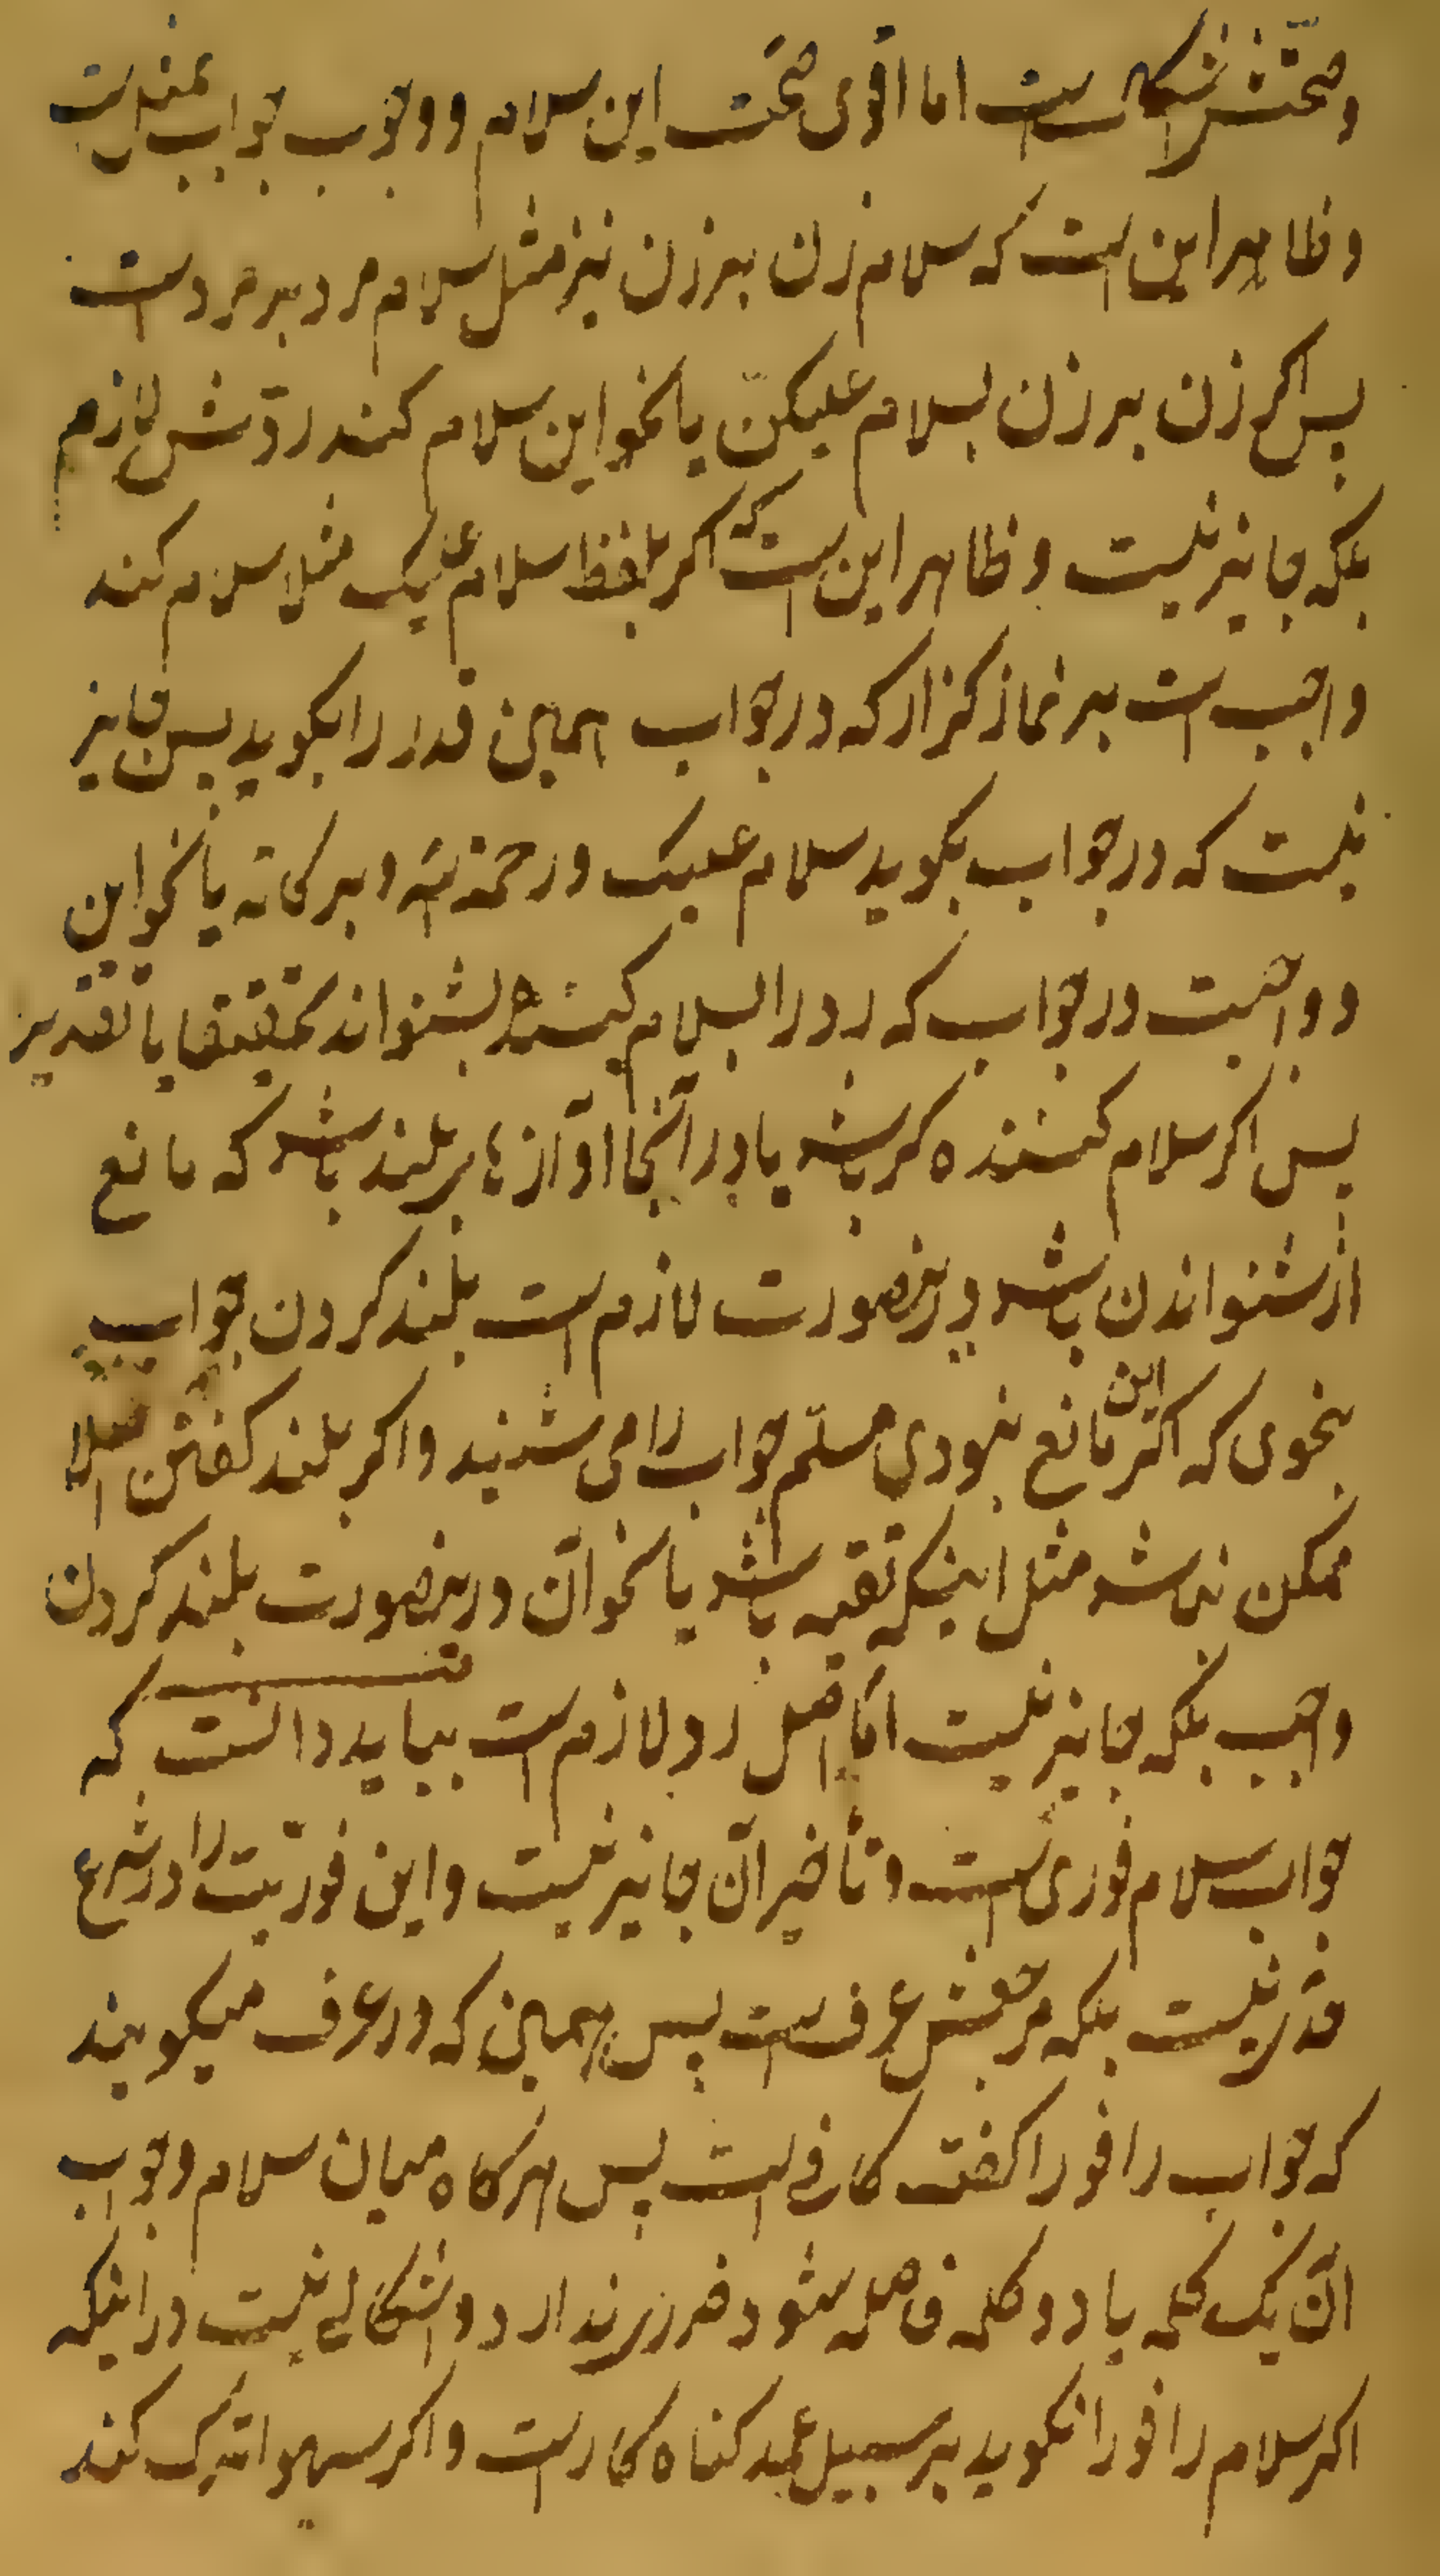 وصحّتش اشکال است اما اقوی صحّت این سلام و وجوب جواب بمثل است
وظاهر این است که سلام زن بر زن نیز مثل سلام مرد بر مرد است
پس اکر زن بر زن بسلام علیکنّ یا نحو این سلام کند ردّش لازم
بلکه جایز نیست وظاهر این است که اکر بلفظ سلام علیک مثلا سلام کند
واجب است بر نماز کزار که در جواب همین قدر را بکوید پس جایز
نیست که در جواب بکوید سلام علیک ورحمة الله وبرکاته یا نحو این
و واجبست در جواب که رد را بسلام کننده بشنواند تحقیقا یا تقدیر
پس اکر سلام کننده کر باشد یا در آنجا آوازهای بلند باشد که مانع
از شنواندن باشد درینصورت لازم است بلند کردن جواب
بنحوی که اکر این مانع نبودی مسلّم جواب را می شنید واکر بلند کفتن سلا
ممکن نباشد مثل اینکه تقیه باشد یا نحو آن درینصورت بلند کردن
واجب بلکه جایز نیست امّا اصل رد لازم است بباید دانست که
جواب سلام فوری است وتأخیر آن جایز نیست واین فوریّت را در شرع
قدری نیست بلکه مرجعش عرف است پس همین که در عرف میکویند
که جواب را فورا کفت کافی است پس هرکاه میان سلام وجواب
آن یک کلمه یا دو کلمه فاصله شود ضرر ندارد واشکالی نیست در اینکه
اکر سلام را فورا نکوید بر سبیل عمد کناه کار است واکر سهوا ترک کند